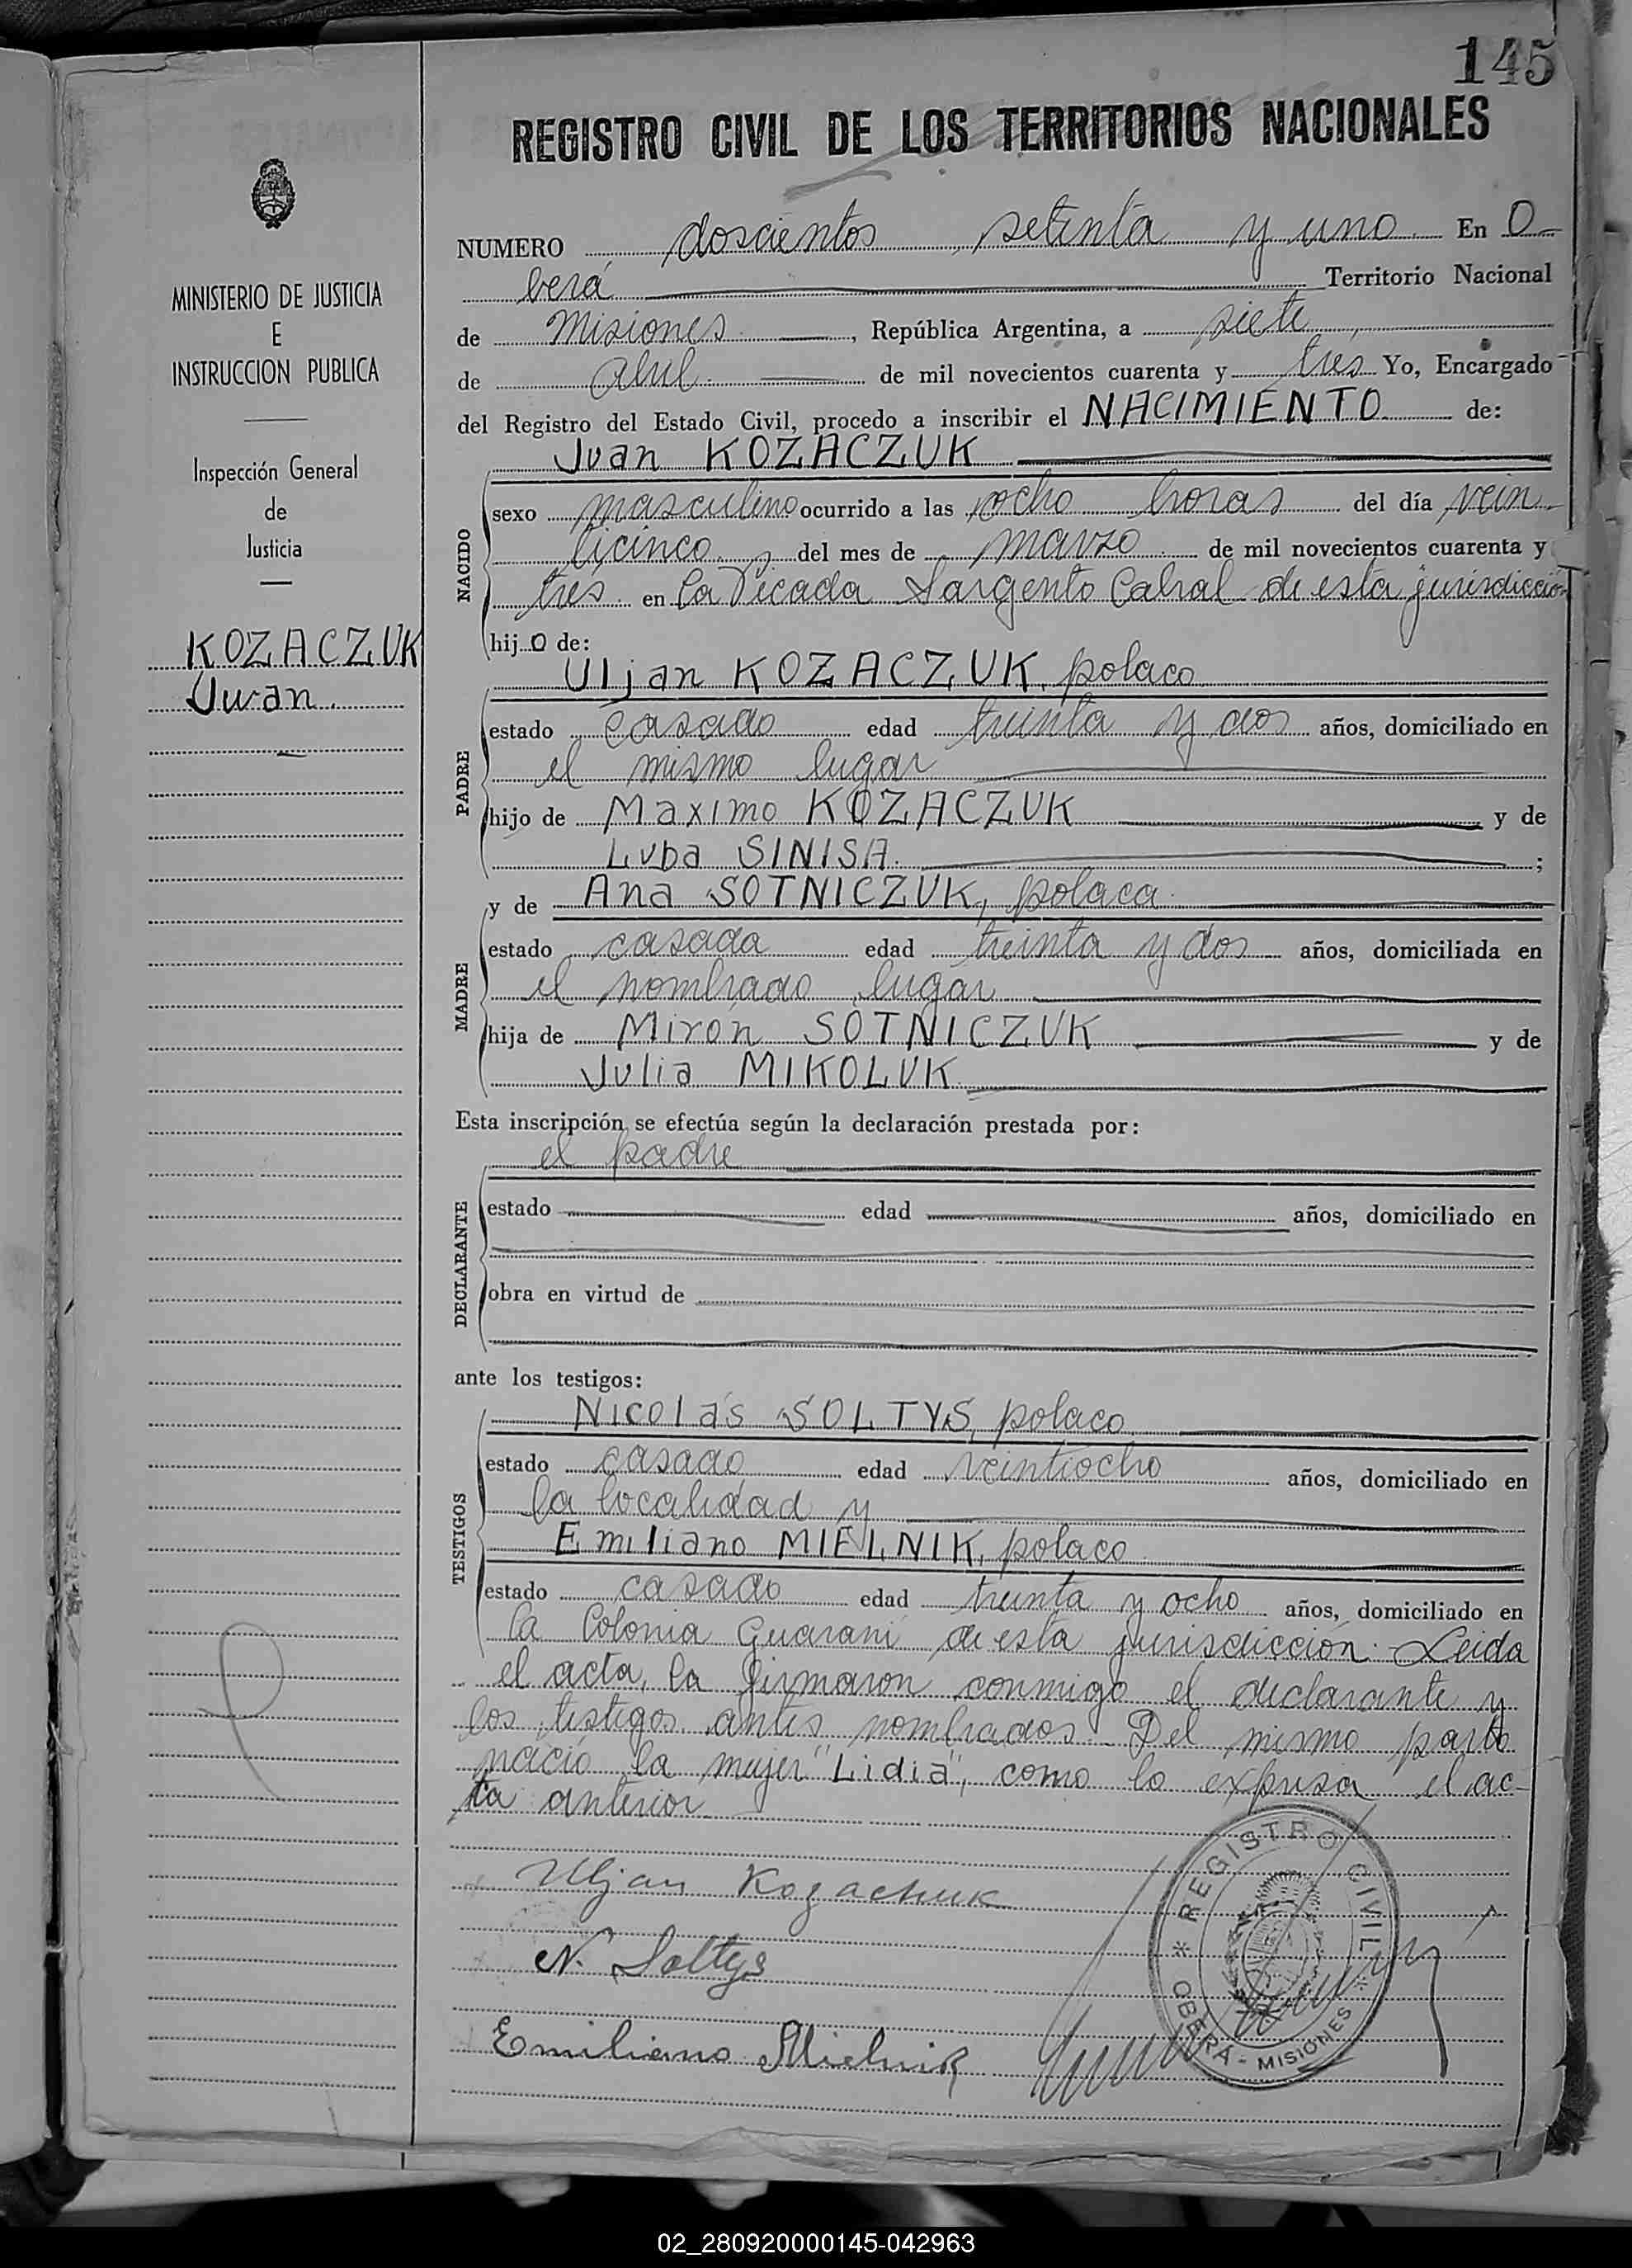 145
REGISTRO CIVIL DE LOS TERRITORIOS NACIONALES
MINISTERIO DE JUSTICIA
E
INSTRUCCION PUBLICA
Inspección General
de
Justicia
KOZACZUK
Juan.
NUMERO doscientos setenta y uno En O-
berá Territorio Nacional
de Misiones, República Argentina, a siete
de abril de mil novecientos cuarenta y tres Yo, Encargado
del Registro del Estado Civil, procedo a inscribir el NACIMIENTO de:
Juan KOZACZUK
NACIDO
sexo masculino ocurrido a las ocho horas del día vein-
ticinco, del mes de marzo de mil novecientos cuarenta y
tres en la Picada Sargento Cabral de esta jurisdicción
hijo de:
Uljan KOZACZUK, polaco
PADRE
estado casado edad treinta y dos años, domiciliado en
el mismo lugar
hijo de Maximo KOZACZUK y de
Luba SINISA. ;
y de Ana SOTNICZUK, polaca
MADRE
estado casada edad treinta y dos años, domiciliada en
el nombrado lugar
hija de Mirón SOTNICZUK y de
Julia MIKOLUK.
Esta inscripción se efectúa según la declaración prestada por:
el padre
DECLARANTE
estado edad años, domiciliado en
obra en virtud de
ante los testigos:
Nicolás SOLTYS, polaco
TESTIGOS
estado casado edad veintiocho años, domiciliado en
la localidad y
Emiliano MIELNIK, polaco
estado casado edad treinta y ocho años, domiciliado en
la Colonia Guaraní de esta jurisdicción. Leída
el acta, la firmaron conmigo el declarante y
los testigos antes nombrados. Del mismo parto
nació la mujer "Lidia", como lo expresa el ac-
ta anterior
Uljan Kozachuk
N. Soltys
Emiliano Mielnik
REGISTRO CIVIL
OBERÁ - MISIONES
02_280920000145-042963